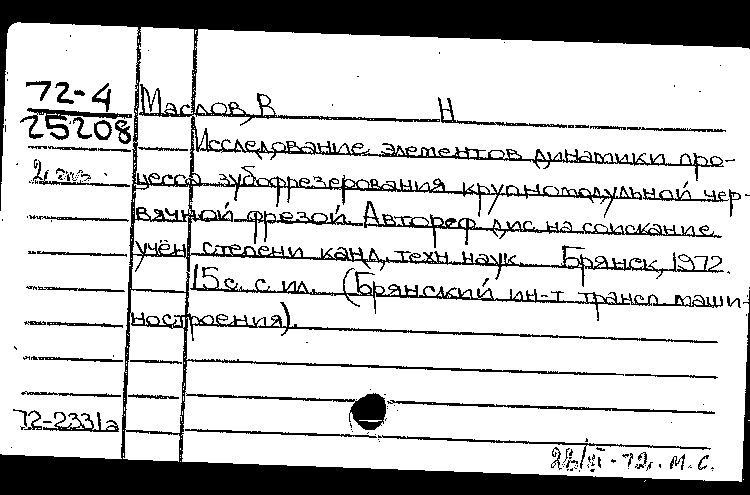 72-4
25208
2 экз.
Маслов, В Н
Исследование элементов динамики про-
цесса зубофрезерования крупномодульной чер-
вячной фрезой. Автореф. дис. на соискание
учён. степени канд. техн. наук. Брянск, 1972.
15 с. с ил. (Брянский ин-т трансп. маши-
ностроения).
72-2331а
72г. М.С.